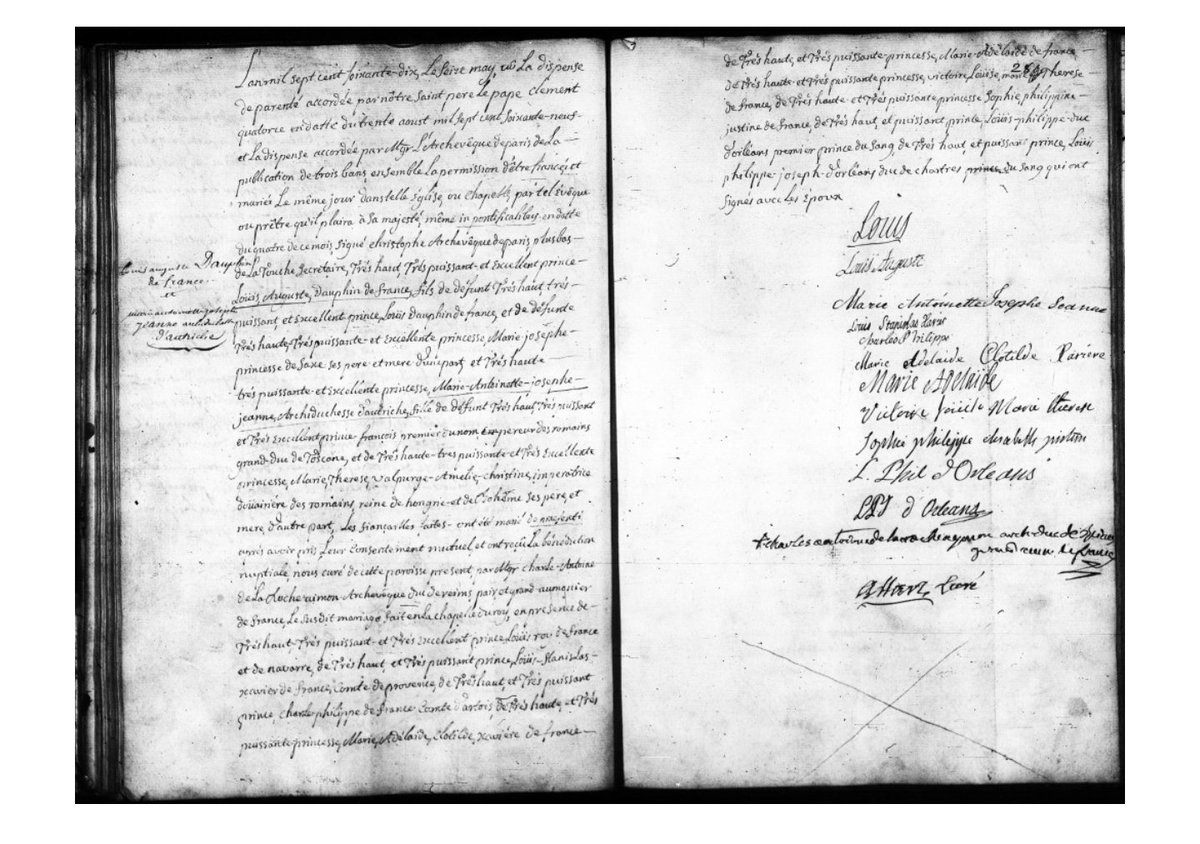 L'an mil sept cent soixante-dix, Le seize may, vû La dispense
de parenté accordée par nôtre Saint pere le pape clement
quatorze en datte du trente aoust mil sept cent Soixante-neuf
et La dispense accordée par Mgr L'Archevêque de paris de La
publication de trois bans ensemble La permission d'être fiancés et
mariés Le même jour dans telle Eglise, ou Chapelle, par tel Evêque
ou prêtre qu'il plaira à Sa majesté, même in pontificalibus en datte
du quatre de ce mois signé christophe Archevêque de paris, plus bas
de La Touche Secrétaire, Trés haut Trés puissant et Excellent prince
Louis Auguste, Dauphin de France, fils de défunt Trés haut trés
puissant et Excellent prince, Louis dauphin de france, et de défunte
Trés haute, Trés puissante et Excellente princesse, Marie josephe
princesse de Saxe ses pere et mere d'une part, et Trés haute
trés puissante et Excellente princesse, Marie-Antoinette-josephe
jeanne, Archiduchesse d'autriche, fille de défunt Trés haut Trés puissant
et Trés Excellent prince françois premier du nom Empereur des romains
grand duc de Toscane, et de Trés haute trés puissante et Trés Excellente
princesse, Marie Therese, Valpurge Amélie christine, imperatrice
douairière des romains, reine de hongrie et de bohême ses pere, et
mere d'autre part, Les fiançailles faites ont été marié de præsenti
aprés avoir pris Leur consentement mutuel et ont reçû La bénédiction
nuptiale, nous curé de cette paroisse present, par Mgr charle Antoine
de La Roche aimon Archevêque duc de reims pair et grand aumonier
de France, Le Susdit mariage fait en La chapelle du roy, en presence de
Trés haut Trés puissant et Trés Excellent prince Louis roy de france
et de navarre, de Trés haut et Trés puissant prince, Louis-Stanislas
xavier de France, Comte de provence, de Trés haut, et Trés puissant
prince charle philippe de France Comte d'artois de Trés haute et Trés
puissante princesse, Marie, Adelaide, Clotilde, xavière de france
Louis auguste Dauphin
de france
et
marie antoinette josephe
jeanne
d'autriche
de Trés haut, et Trés puissante princesse, Marie Adélaide de france
28
de Trés haute et Trés puissante princesse, victoire, Louise, marie Therese
de france, de Trés haute et Trés puissante princesse Sophie philippine
justine de france, de Trés haut, et puissant, prince, Louis-philippe-duc
d'orléans premier prince du sang, de Trés haut et puissant prince, Louis
philippe joseph d'orléans duc de chartres prince du sang qui ont
signés avec Les Epoux
Louis
Louis Auguste
Marie Antoinette Josephe Jeanne
Louis Stanislas Xavier
Charles Philippe
Marie Adelaide Clotilde Xaviere
Marie Adelaide
Victoire Louise Marie Therese
Sophie philippe elisabeth justine
L. Phil d'Orleans
LPJ d'Orleans
+ charles antoine de la roche aymon arch. duc de Reims
grand aum. de france
Allart, Curé